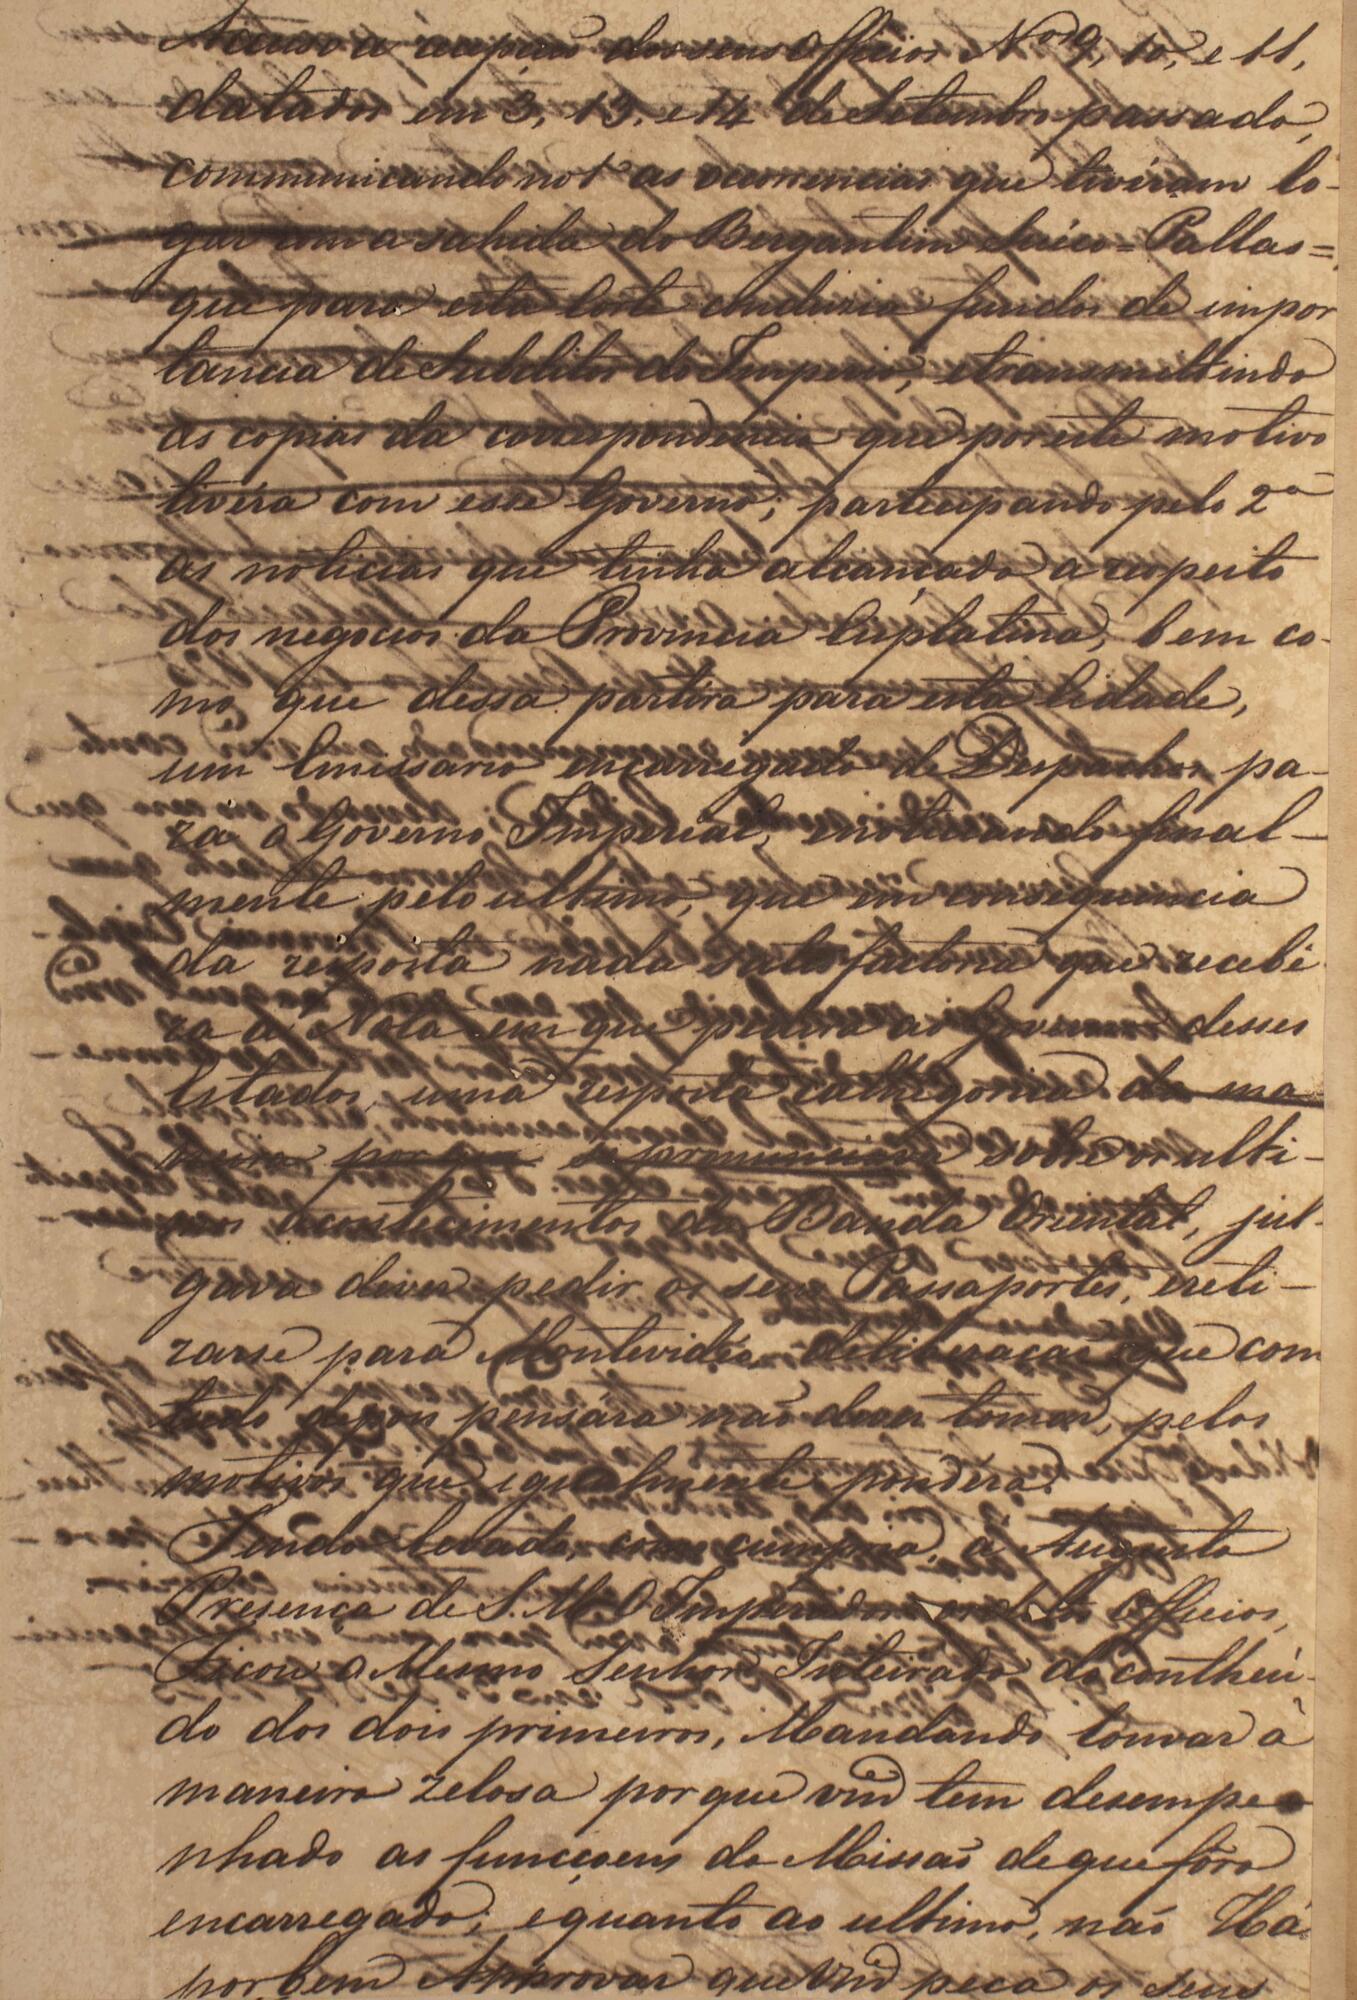 Accuso a recepção dos seus Officios Nos 9, 10, e 11,
datados em 3, 13, e 14 de Setembro passado,
communicando no 1º as ocorrencias que tivéram lo-
gar com a sahida do Bergantim Suéco = Pallas =,
que para esta Corte conduzia fundos de impor
tancia de Subditos do Imperio, e transmettindo
as copias da correspondencia que por este motivo
tivéra com esse Governo; participando pelo 2º
as noticias que tinha alcançado a respeito
dos negocios da Provincia Cisplatina, bem co-
mo que dessa partira para esta Cidade,
um Emissario encarregado de Despachos pa-
ra o Governo Imperial, e noticiando final-
mente pelo ultimo, que em consequencia
da resposta nada satisfactoria que recebê-
ra a Nota em que pedira ao Governo desses
Estados uma resposta cathegorica da ma
neira por que se pronunciava sobre os ulti-
mos acontecimentos da Banda Oriental, jul-
gava dever pedir os seus Passaportes, e reti-
rarse para Montevidéo deliberação que com
tudo depois pensára não dever tomar, pelos
motivos que igualmente pondéra.
Tendo levado, como cumpria, á Augusta
Presença de S. M. O Imperador os Officios,
Ficou o Mesmo Senhor Inteirado do contheú-
do dos dois primeiros, Mandando louvar a
maneira zelosa por que vm tem desempe
nhado as funcçoens da Missão de que fôra
encarregado; e quanto ao ultimo, não Há
por bem Approvar que vm peça os seus